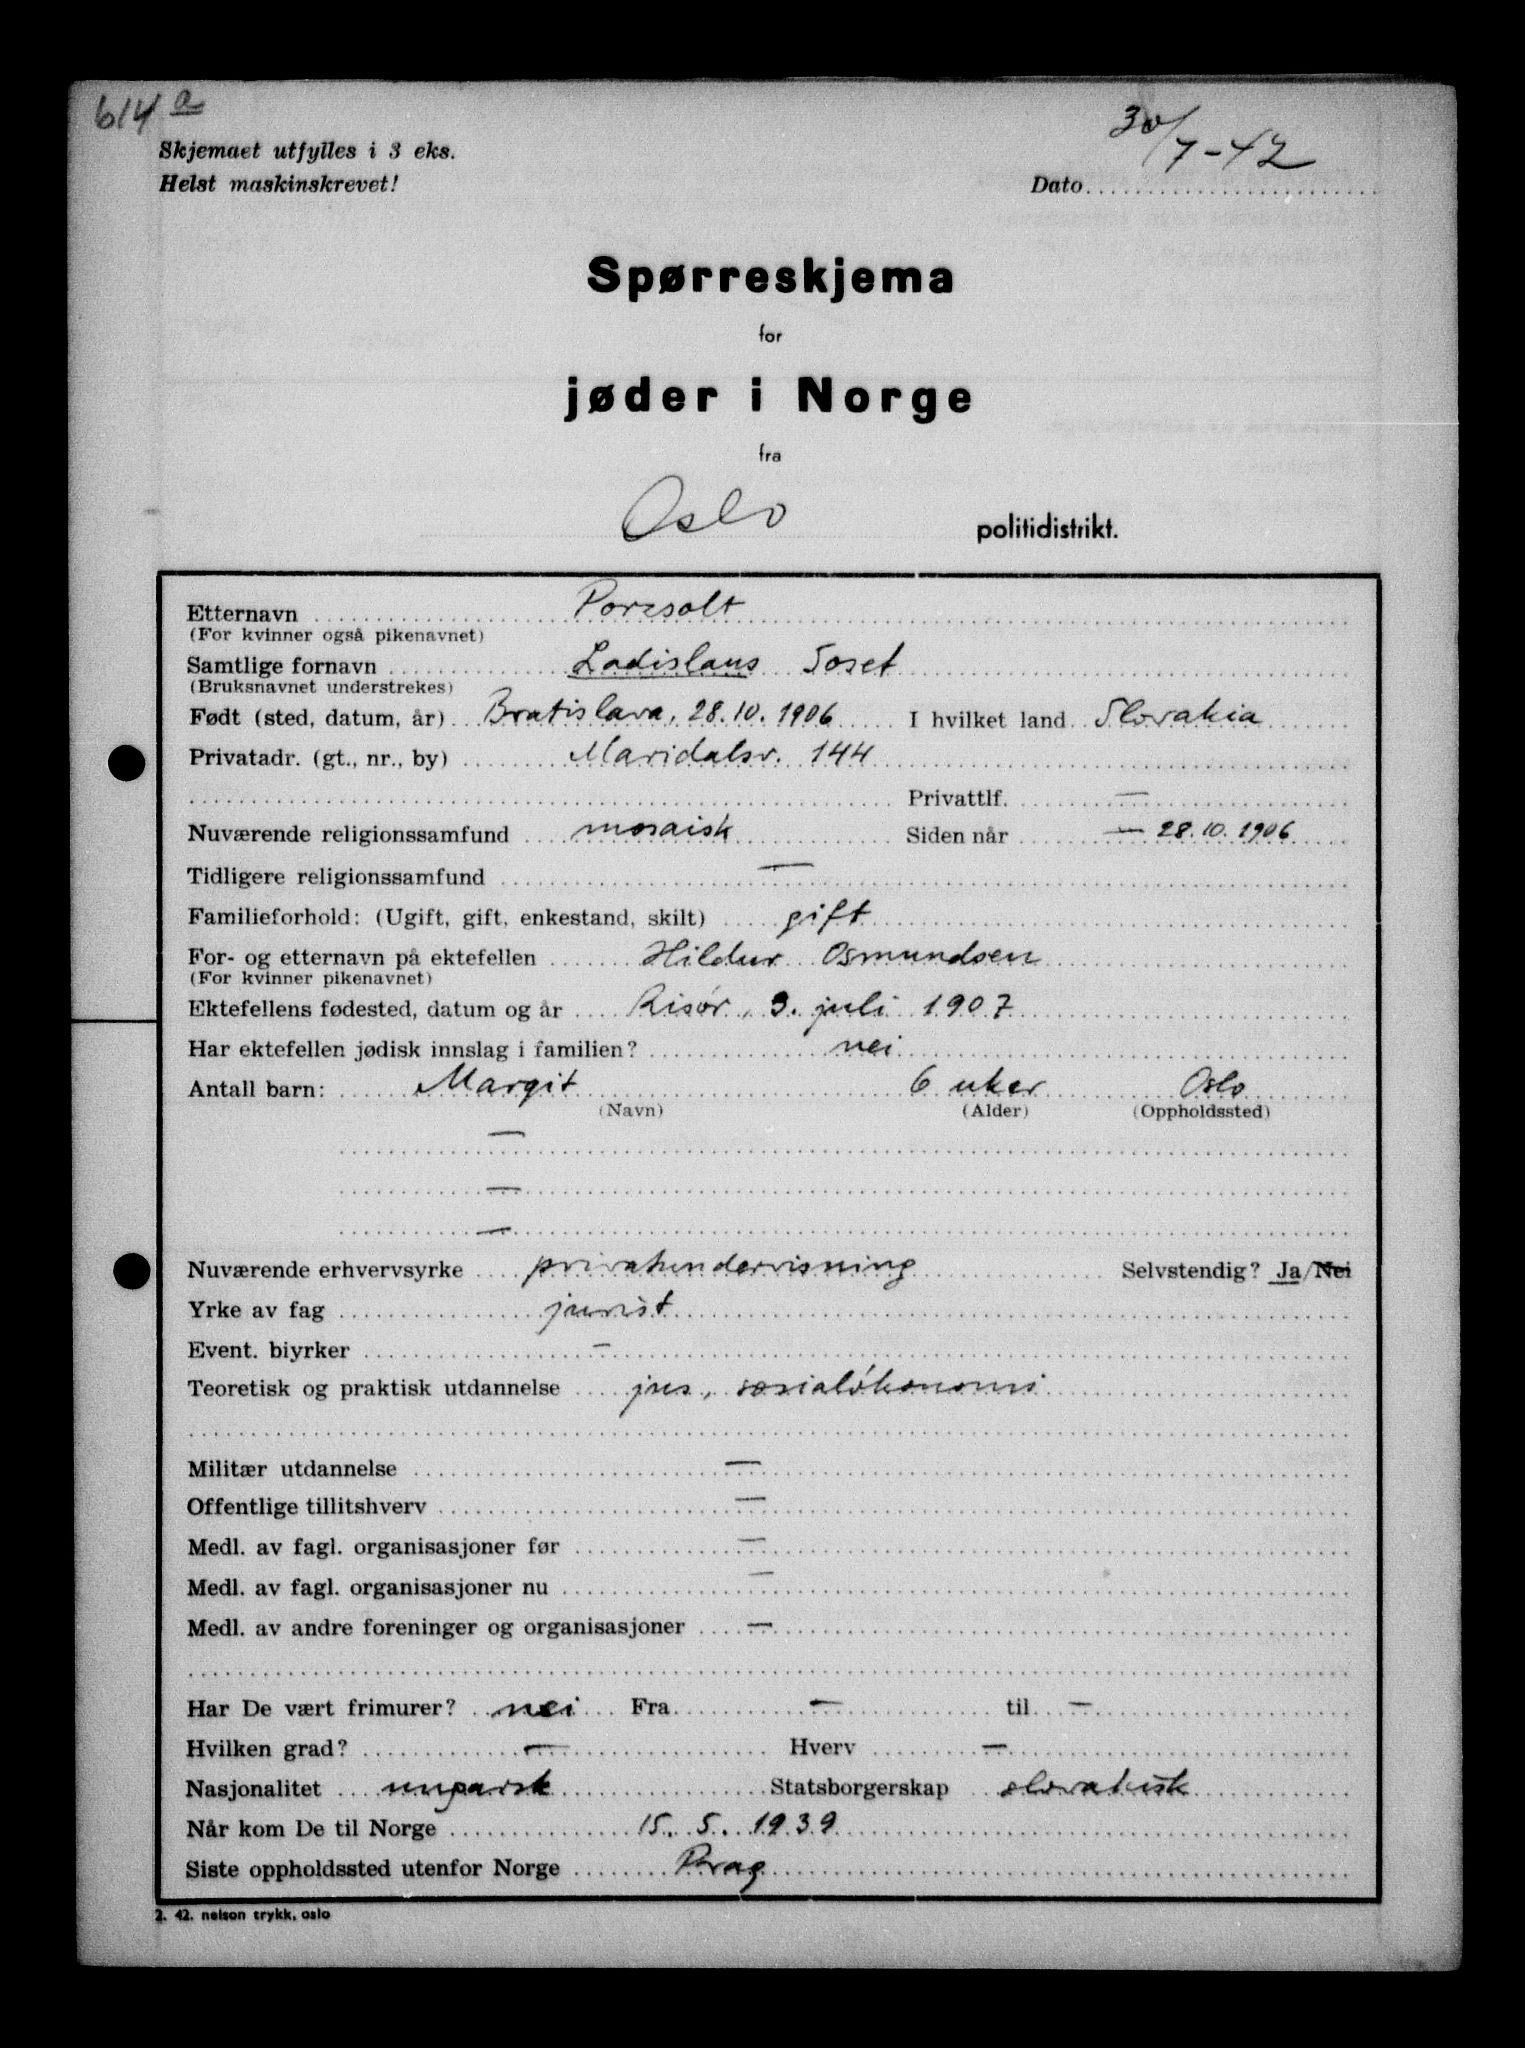 614 a
Skjemaet utfylles i 3 eks.
Helst maskinskrevet!
Dato 30/7-42
Spørreskjema
for
jøder i Norge
fra
Oslo politidistrikt.
Etternavn Porzsolt
(For kvinner også pikenavnet)
Samtlige fornavn Ladislaus Josef
(Bruksnavnet understrekes)
Født (sted, datum, år) Bratislava, 28.10.1906 I hvilket land Slovakia
Privatadr. (gt., nr., by) Maridalsv. 144
Privattlf. —
Nuværende religionssamfund mosaisk Siden når — 28.10.1906
Tidligere religionssamfund —
Familieforhold: (Ugift, gift, enkestand, skilt) gift
For- og etternavn på ektefellen Hildur Osmundsen
(For kvinner pikenavnet)
Ektefellens fødested, datum og år Risör, 3. juli 1907
Har ektefellen jødisk innslag i familien? nei
Antall barn: Margit 6 uker Oslo
(Navn) (Alder) (Oppholdssted)
—
—
—
Nuværende erhvervsyrke privatundervisning Selvstendig? Ja/Nei
Yrke av fag jurist
Event. biyrker —
Teoretisk og praktisk utdannelse jus, sosialökonomi
Militær utdannelse —
Offentlige tillitshverv —
Medl. av fagl. organisasjoner før —
Medl. av fagl. organisasjoner nu —
Medl. av andre foreninger og organisasjoner —
Har De vært frimurer? nei Fra — til —
Hvilken grad? — Hverv —
Nasjonalitet ungarsk Statsborgerskap slovakisk
Når kom De til Norge 15. 5. 1939
Siste oppholdssted utenfor Norge Prag
2. 42. nelson trykk, oslo